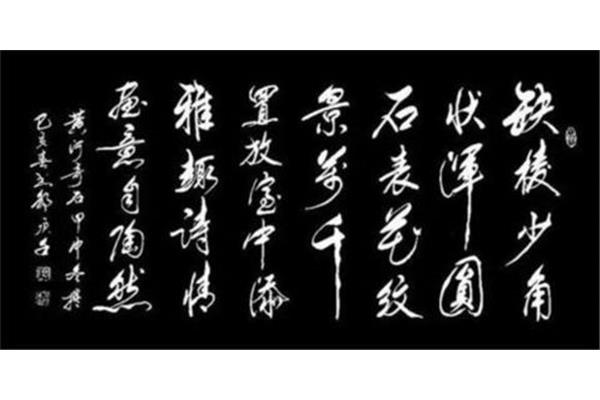 缺棱少角
状浑圆
石表花纹
景万千
置放室中添
雅趣诗情
画意自陶然
黄河奇石甲申冬撰
己亥春